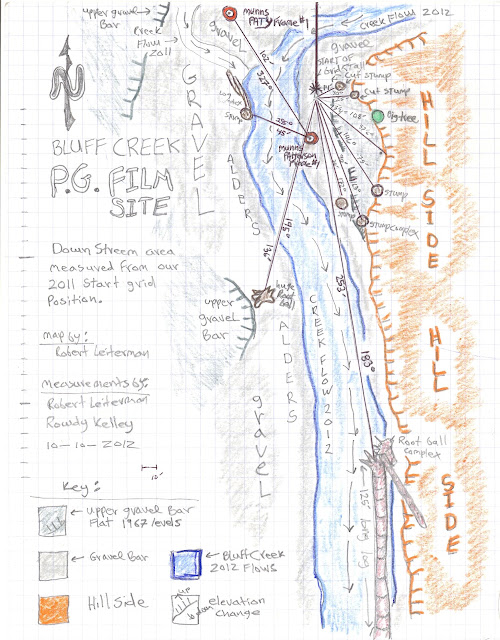 upper gravel
Bar
Creek
Flow
2011
gravel
Munns
PATTY Frame #1
Creek Flow 2012
gravel
START OF
Grid Stall
Cut stump
Cut stump
Big tree
102'
327°
280°
45'
stump
Munns
Patterson
Frame #1
BLUFF CREEK
P.G. FILM
SITE
GRAVEL
ALDERS
HILL SIDE
stump
stump
stump complex
195°
136'
253'
183°
Down Streem area
measured from our
2011 Start grid
Position.
upper
gravel
Bar
huge
Root
Ball
ALDERS
CREEK FLOW 2012
HILL
SIDE
map by:
Robert Leiterman
Measurements by:
Robert Leiterman
Rowdy Kelley
10-10-2012
10'
gravel
Root ball
complex
125' long log
Key:
upper gravel Bar
Flat 1967 levels
Gravel Bar
Bluff Creek
2012 Flows
Hill Side
up
down
elevation
change